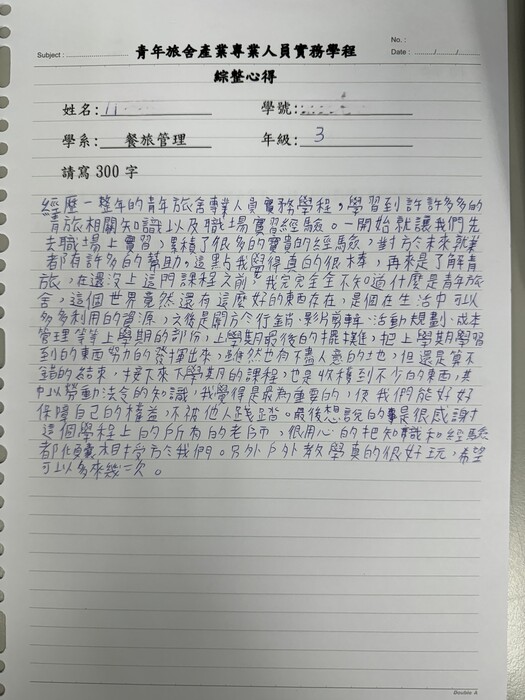 No. :
Subject : 青年旅舍產業專業人員實務學程 Date : / /
綜整心得
姓名: 學號:
學系: 餐旅管理 年級: 3
請寫 300 字
經歷一整年的青年旅舍專業人員實務學程，學習到許許多多的
青旅相關知識以及職場實習經驗。一開始就讓我們先
去職場上實習，累積了很多的寶貴的經驗，對於未來就業
都有許多的幫助。這點我覺得真的很棒，再來是了解青
旅，在還沒上這門課程之前，我完完全全不知道什麼是青年旅
舍，這個世界竟然還有這麼好的東西存在，是個在生活中可以
多多利用的資源，之後是關於行銷、影片剪輯、活動規劃、成本
管理等等上學期的部份，上學期最後的擺攤，把上學期學習
到的東西努力的發揮出來，雖然也有不盡人意的地，但還是算不
錯的結束，接下來下學期的課程，也是收穫到不少的東西，其
中以勞動法令的知識，我覺得是最為重要的，使我們能好好
保障自己的權益，不被他人踐踏。最後想說的事是很感謝
這個學程上的所有的老師，很用心的把知識和經驗
都傾囊相授於我們。另外戶外教學真的很好玩，希望
可以多來幾次。
Double A